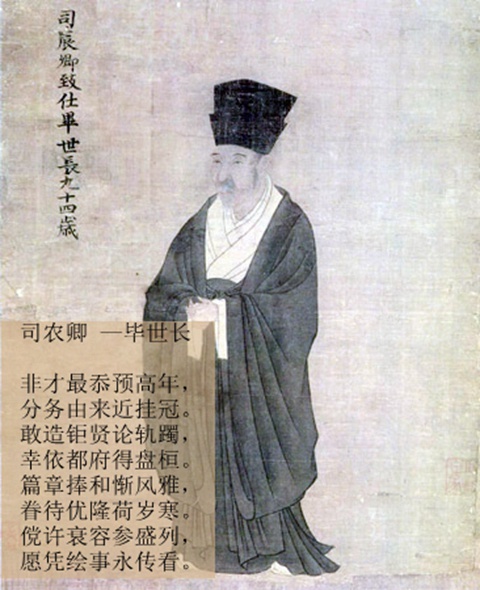 司農卿致仕畢世長九十四歳
司农卿 —毕世长
非才最忝预高年，
分务由来近挂冠。
敢造钜贤论轨躅，
幸依都府得盘桓。
篇章捧和惭风雅，
眷待优隆荷岁寒。
傥许衰容参盛列，
愿凭绘事永传看。